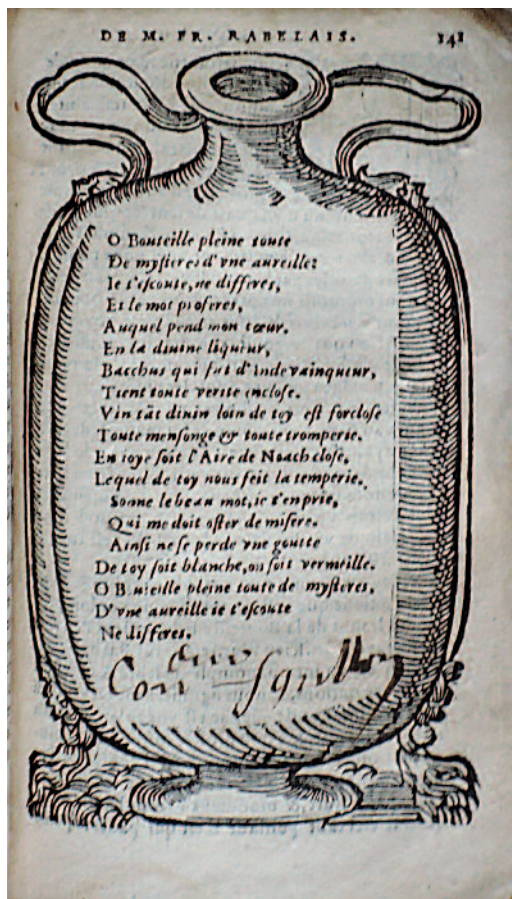 DE M. FR. RABELAIS. 141
O Bouteille pleine toute
De mysteres d'vne aureille:
Ie t'escoute, ne differes,
Et le mot proferes,
Auquel pend mon cœur.
En la diuine liqueur,
Bacchus qui fut d'Inde vainqueur,
Tient toute verite enclose.
Vin tãt diuin loin de toy est forclose
Toute mensonge & toute tromperie.
En ioye soit l'Aire de Noach close,
Lequel de toy nous feit la temperie.
Sonne le beau mot, ie t'en prie,
Qui me doit oster de misere.
Ainsi ne se perde vne goutte
De toy soit blanche, ou soit vermeille.
O Bouteille pleine toute de mysteres,
D'vne aureille ie t'escoute
Ne differes.